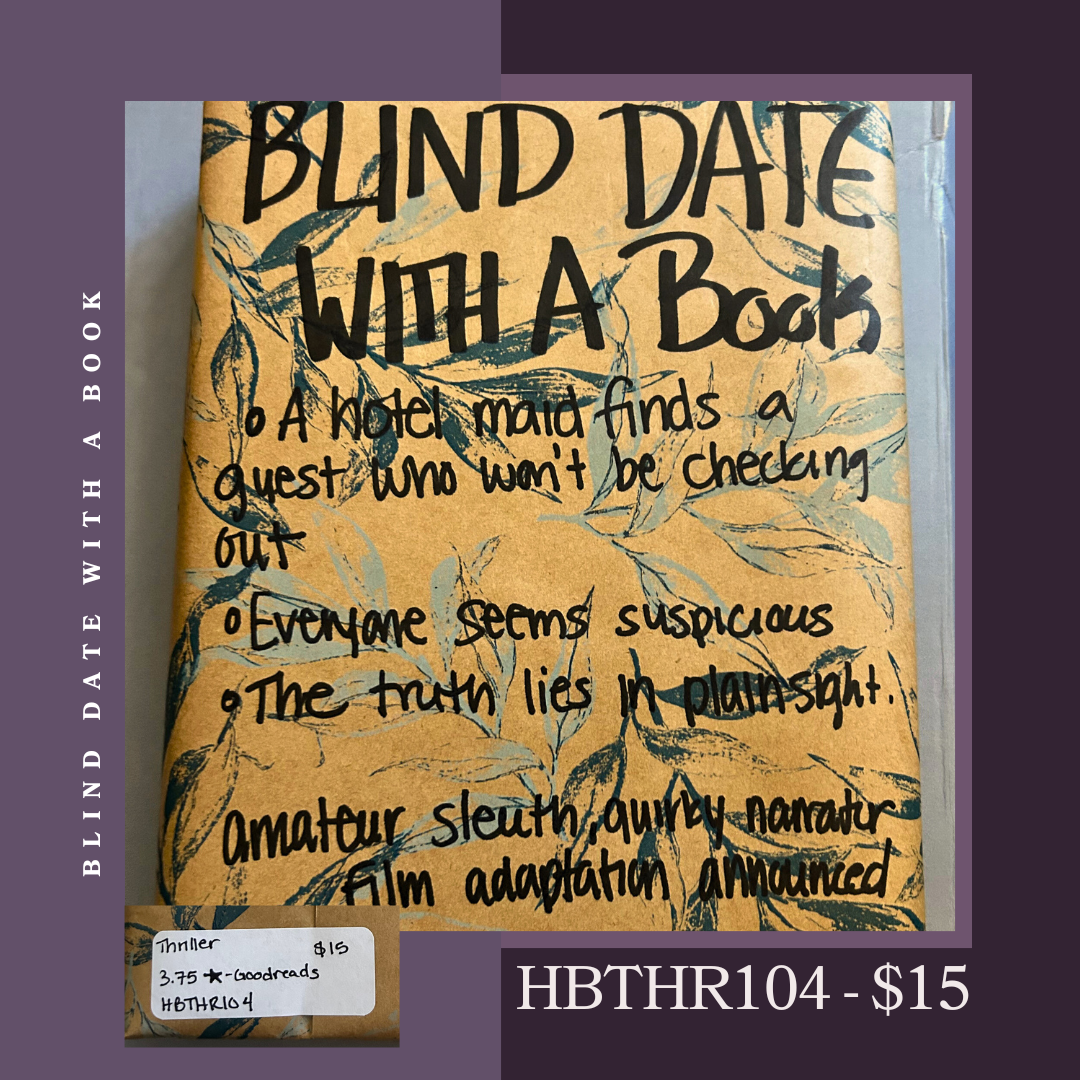 BLIND DATE WITH A BOOK
BLIND DATE
WITH A Book
o A hotel maid finds a
guest who won't be checking
out
o Everyone seems suspicious
o The truth lies in plain sight.
amateur sleuth, quirky narrator
Film adaptation announced
Thriller $15
3.75 ★-Goodreads
HBTHR104
HBTHR104 - $15